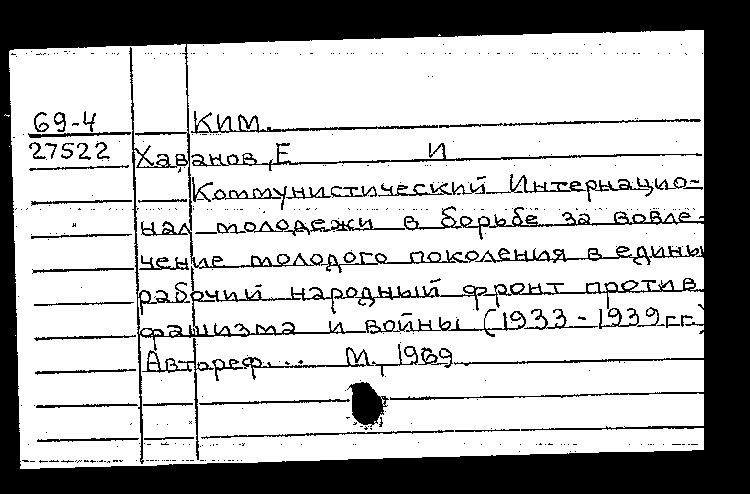 69-4 КИМ.
27522 Хаванов, Е И
Коммунистический Интернацио-
нал молодежи в борьбе за вовле-
чение молодого поколения в едины
рабочий народный фронт против
фашизма и войны (1933-1939 гг.)
Автореф... М., 1969.